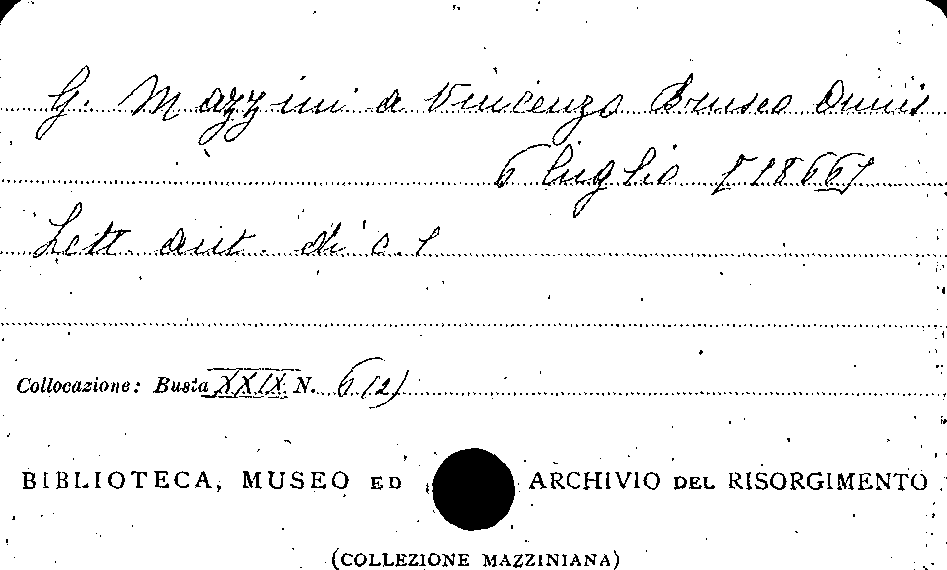 G. Mazzini a Vincenzo Brusco Onnis
6 luglio [1866]
Lett. aut. di c. 1
Collocazione: Busta XXIX N. 6 (2)
BIBLIOTECA, MUSEO ED ARCHIVIO DEL RISORGIMENTO
(COLLEZIONE MAZZINIANA)